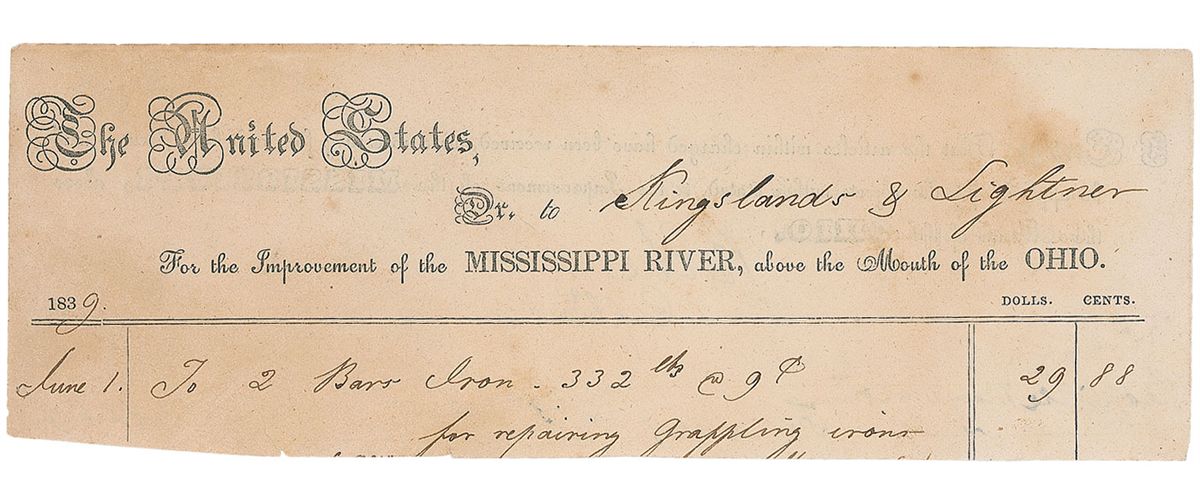 The United States,
Dr. to Kingslands & Lightner
For the Improvement of the MISSISSIPPI RIVER, above the Mouth of the OHIO.
1839. DOLLS. CENTS.
June 1. To 2 Bars Iron - 332 lbs @ 9 ₵ 29 88
for repairing grappling irons